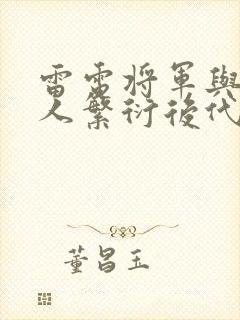 雷霆將軍與
人繁衍後代
董昌玉